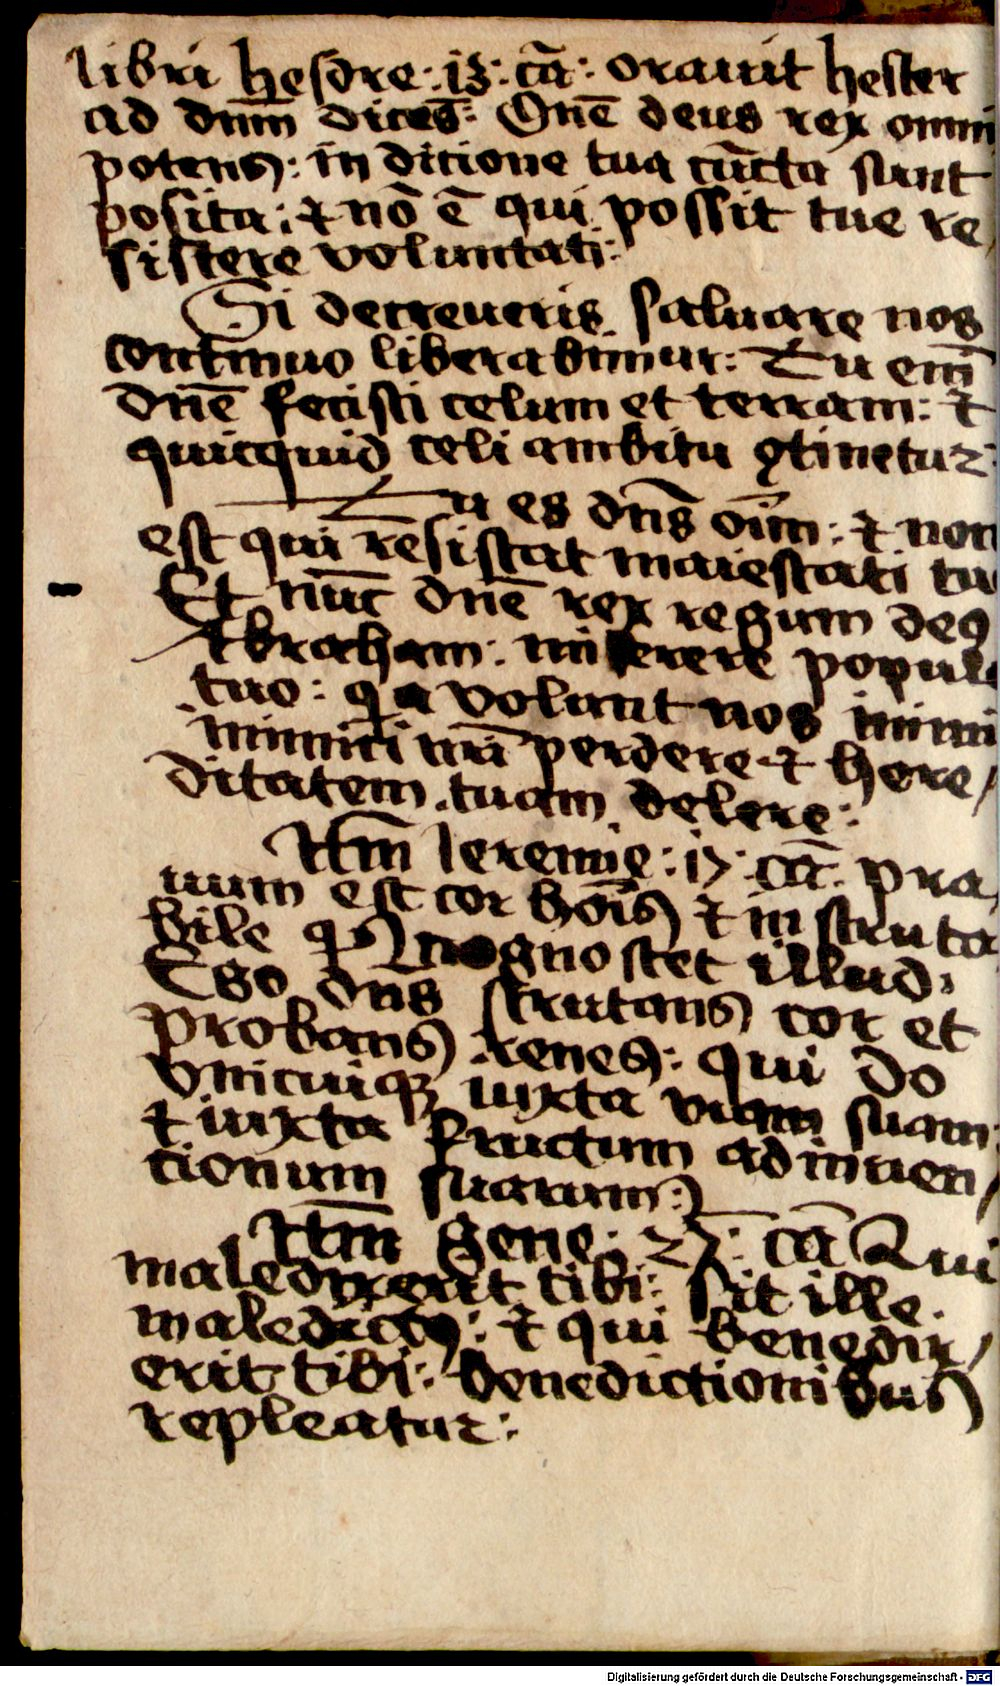 libri hesdre: 13: cā: orauit hester
ad dnm̄ dicēs: Dnē deus rex omni
potens: in dicione tua cūcta sunt
posita: ⁊ nō ē qui possit tue re
sistere voluntati:
Si decreueris saluare nos
continuo liberabimur: Tu enī
dnē fecisti celum et terram: ⁊
quicquid celi ambitu ꝯtinetur:
Tu es dn̄s oīm: ⁊ non
est qui resistat maiestati tu
Et nūc dnē rex regum deꝰ
Abraham: miserere popul
tuo: qa volunt nos inimi
inimici nr̄i perdere ⁊ here/
ditatem tuam delere:
Itm̄ Ieremie: 17: cā: pra/
uum est cor hoīs ⁊ inscruta
bile ꝗs cognoscet illud:
Ego dns scrutans cor et
probans renes: qui do
vnicuiqꝫ iuxta viam suam:
⁊ iuxta fructum adinuen/
cionum suarum:
Itm̄ Gene: 27: cā Qui
maledixerit tibi: sit ille
maledictꝰ: ⁊ qui benedix/
erit tibi: benedictionibus
repleatur:
Digitalisierung gefördert durch die Deutsche Forschungsgemeinschaft - DFG